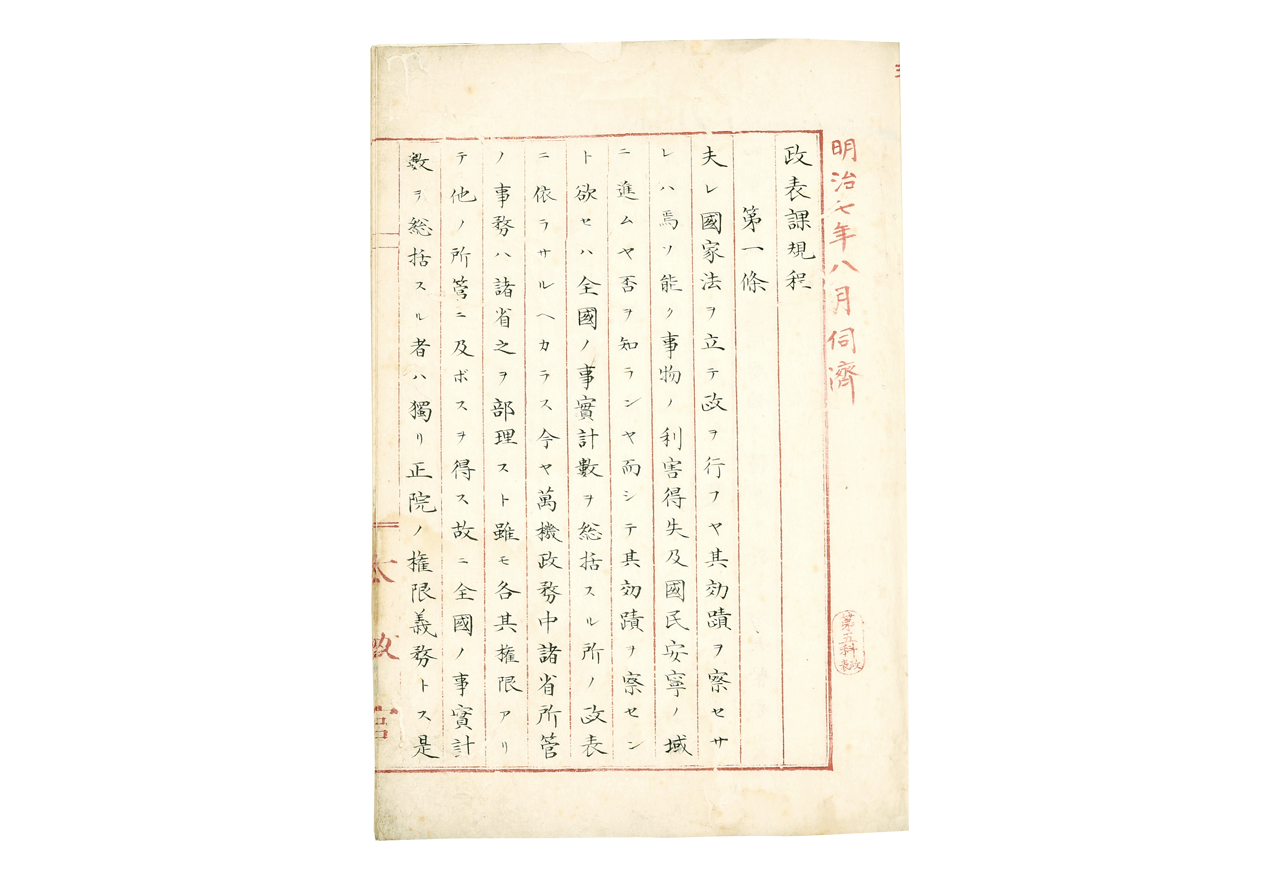 明治七年八月伺済
政表課規程
第一條
夫レ國家法ヲ立テ政ヲ行フヤ其効蹟ヲ察セサ
レハ焉ソ能ク事物ノ利害得失及國民安寧ノ域
ニ進ムヤ否ヲ知ランヤ而シテ其効蹟ヲ察セン
ト欲セハ全國ノ事實計數ヲ総括スル所ノ政表
ニ依ラサルヘカラス今ヤ萬機政務中諸省所管
ノ事務ハ諸省之ヲ部理スト雖モ各其権限アリ
テ他ノ所管ニ及ボスヲ得ス故ニ全國ノ事實計
數ヲ総括スル者ハ獨リ正院ノ権限義務トス是
太政官
第五科
政表